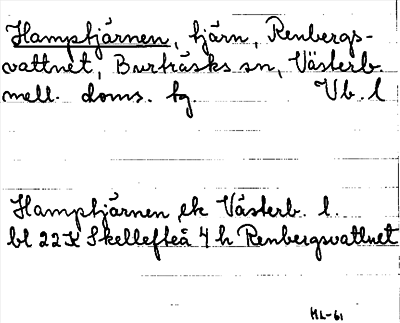 Hamptjärnen, tjärn, Renbergs-
vattnet, Burträsks sn, Västerb.
mell. doms. tg. Vb. l
Hamptjärnen ek Västerb. l.
bl 22K Skellefteå 4 h Renbergsvattnet
HL-61